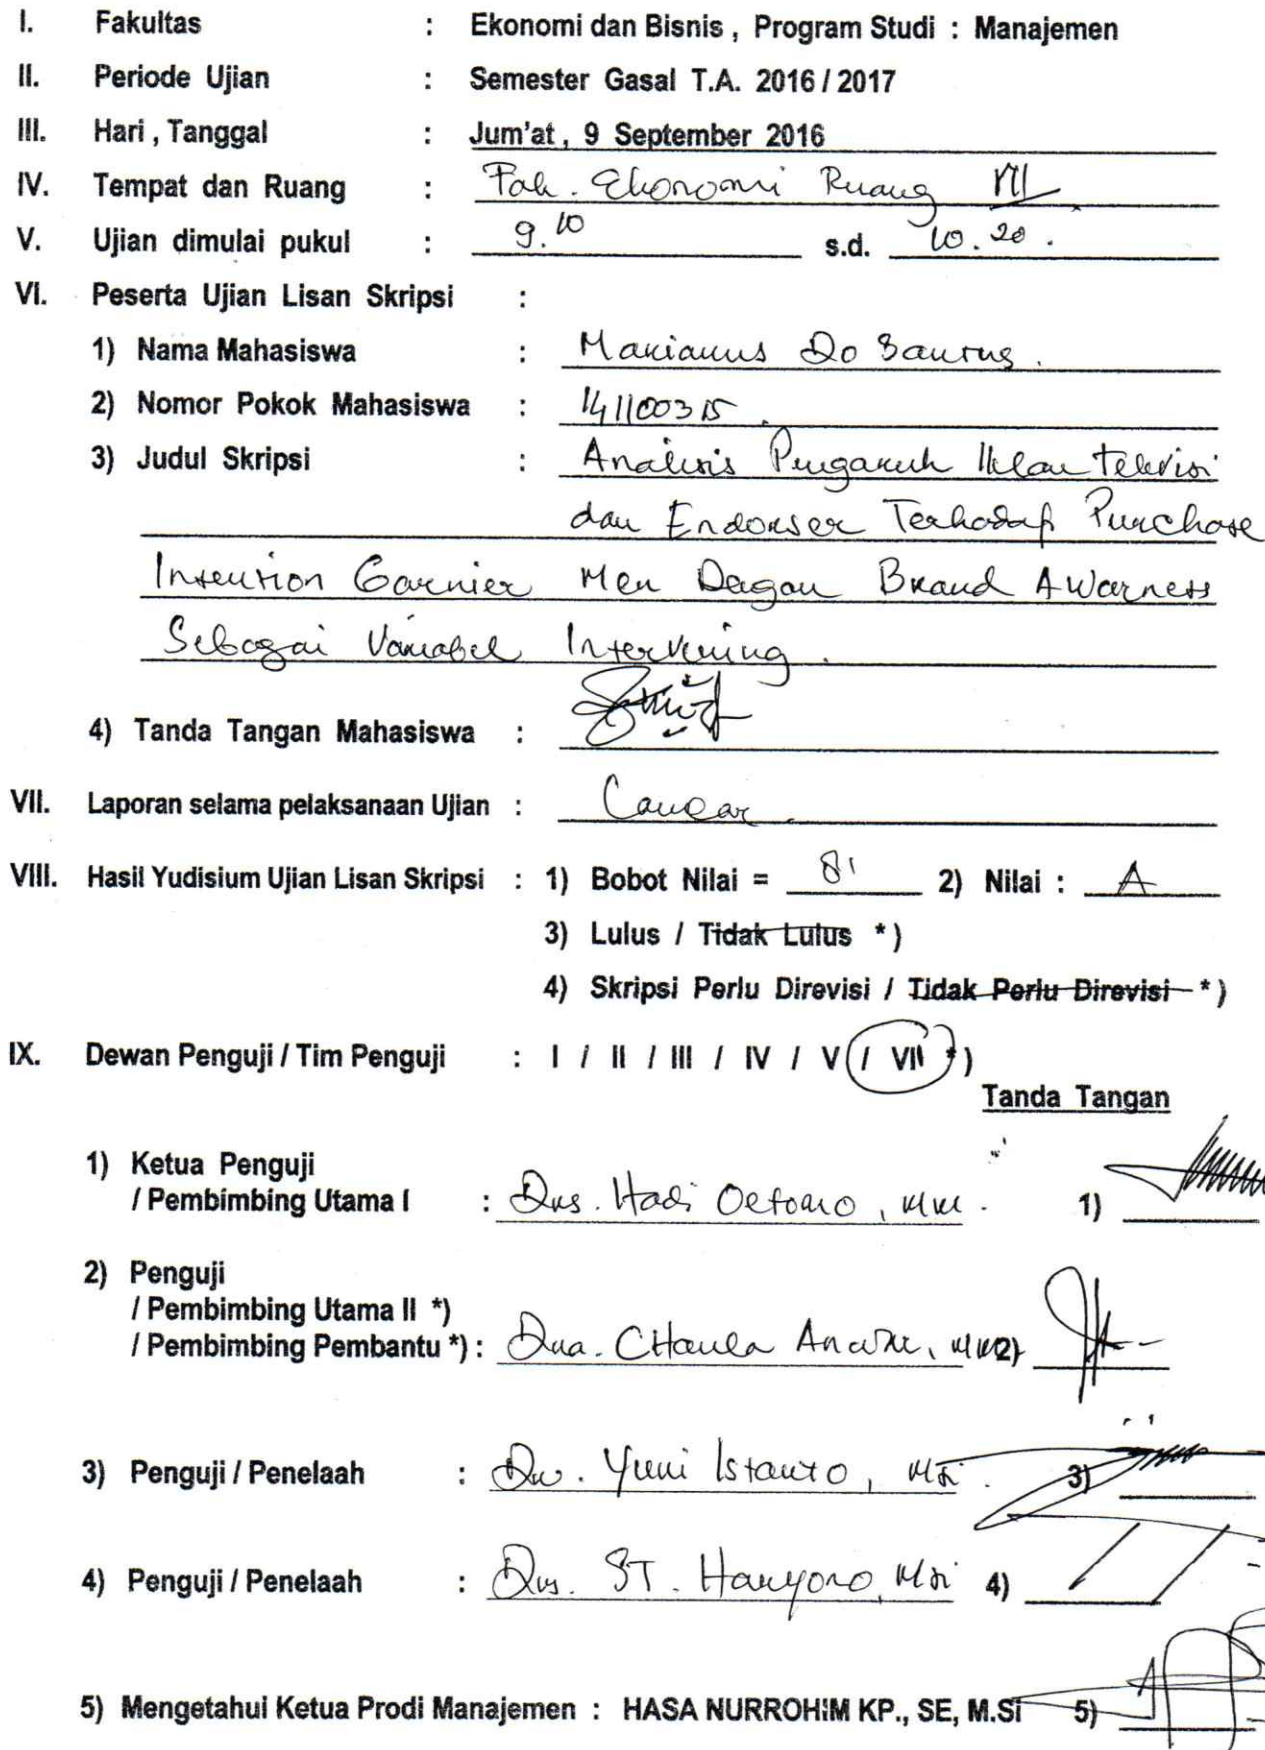 I. Fakultas : Ekonomi dan Bisnis , Program Studi : Manajemen
II. Periode Ujian : Semester Gasal T.A. 2016 / 2017
III. Hari , Tanggal : Jum'at , 9 September 2016
IV. Tempat dan Ruang : Fak. Ekonomi Ruang VII
V. Ujian dimulai pukul : 9.10 s.d. 10.20.
VI. Peserta Ujian Lisan Skripsi :
1) Nama Mahasiswa : Marianus Do Santus.
2) Nomor Pokok Mahasiswa : 141100315
3) Judul Skripsi : Analisis Pengaruh Iklan Televisi
dan Endorser Terhadap Purchase
Intention Garnier Men Dengan Brand Awarness
Sebagai Variabel Intervening.
4) Tanda Tangan Mahasiswa :
VII. Laporan selama pelaksanaan Ujian : Lancar.
VIII. Hasil Yudisium Ujian Lisan Skripsi : 1) Bobot Nilai = 81 2) Nilai : A
3) Lulus / Tidak Lulus *)
4) Skripsi Perlu Direvisi / Tidak Perlu Direvisi *)
IX. Dewan Penguji / Tim Penguji : I / II / III / IV / V / VII *)
Tanda Tangan
1) Ketua Penguji
/ Pembimbing Utama I : Drs. Hadi Oetomo, MM. 1)
2) Penguji
/ Pembimbing Utama II *)
/ Pembimbing Pembantu *) : Dra. CHaula MM 2)
3) Penguji / Penelaah : Dr. Yuni Istanto, Msi. 3)
4) Penguji / Penelaah : Drs. ST. Haryono, Msi 4)
5) Mengetahui Ketua Prodi Manajemen : HASA NURROHIM KP., SE, M.Si 5)